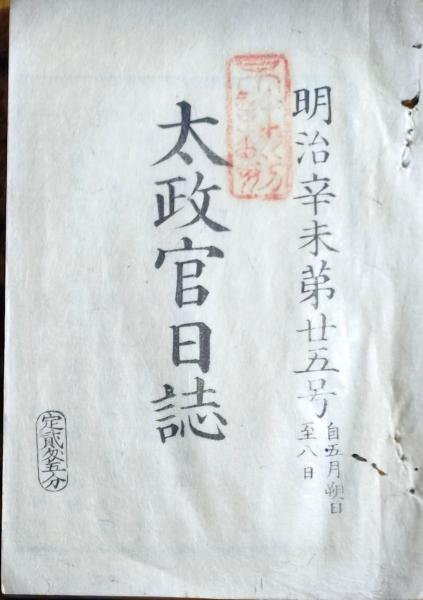 明治辛未第廿五号
自五月朔日
至八日
太政官日誌
定貮匁五分